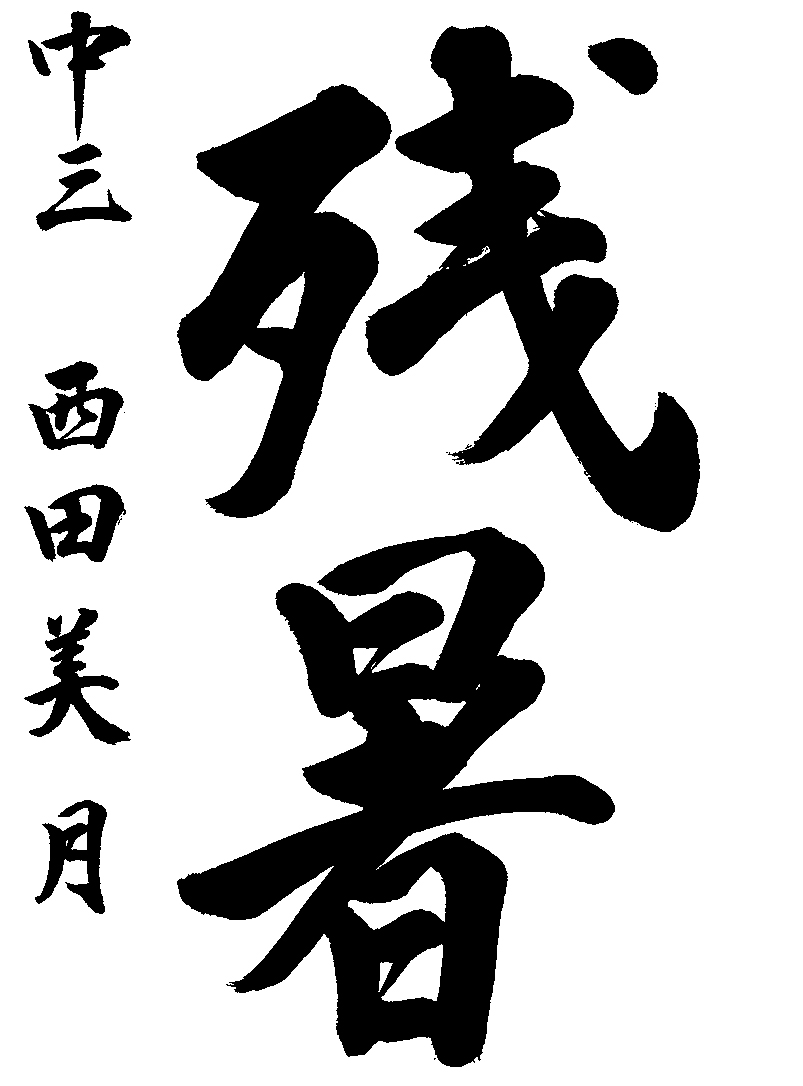 残暑
中三 西田美月